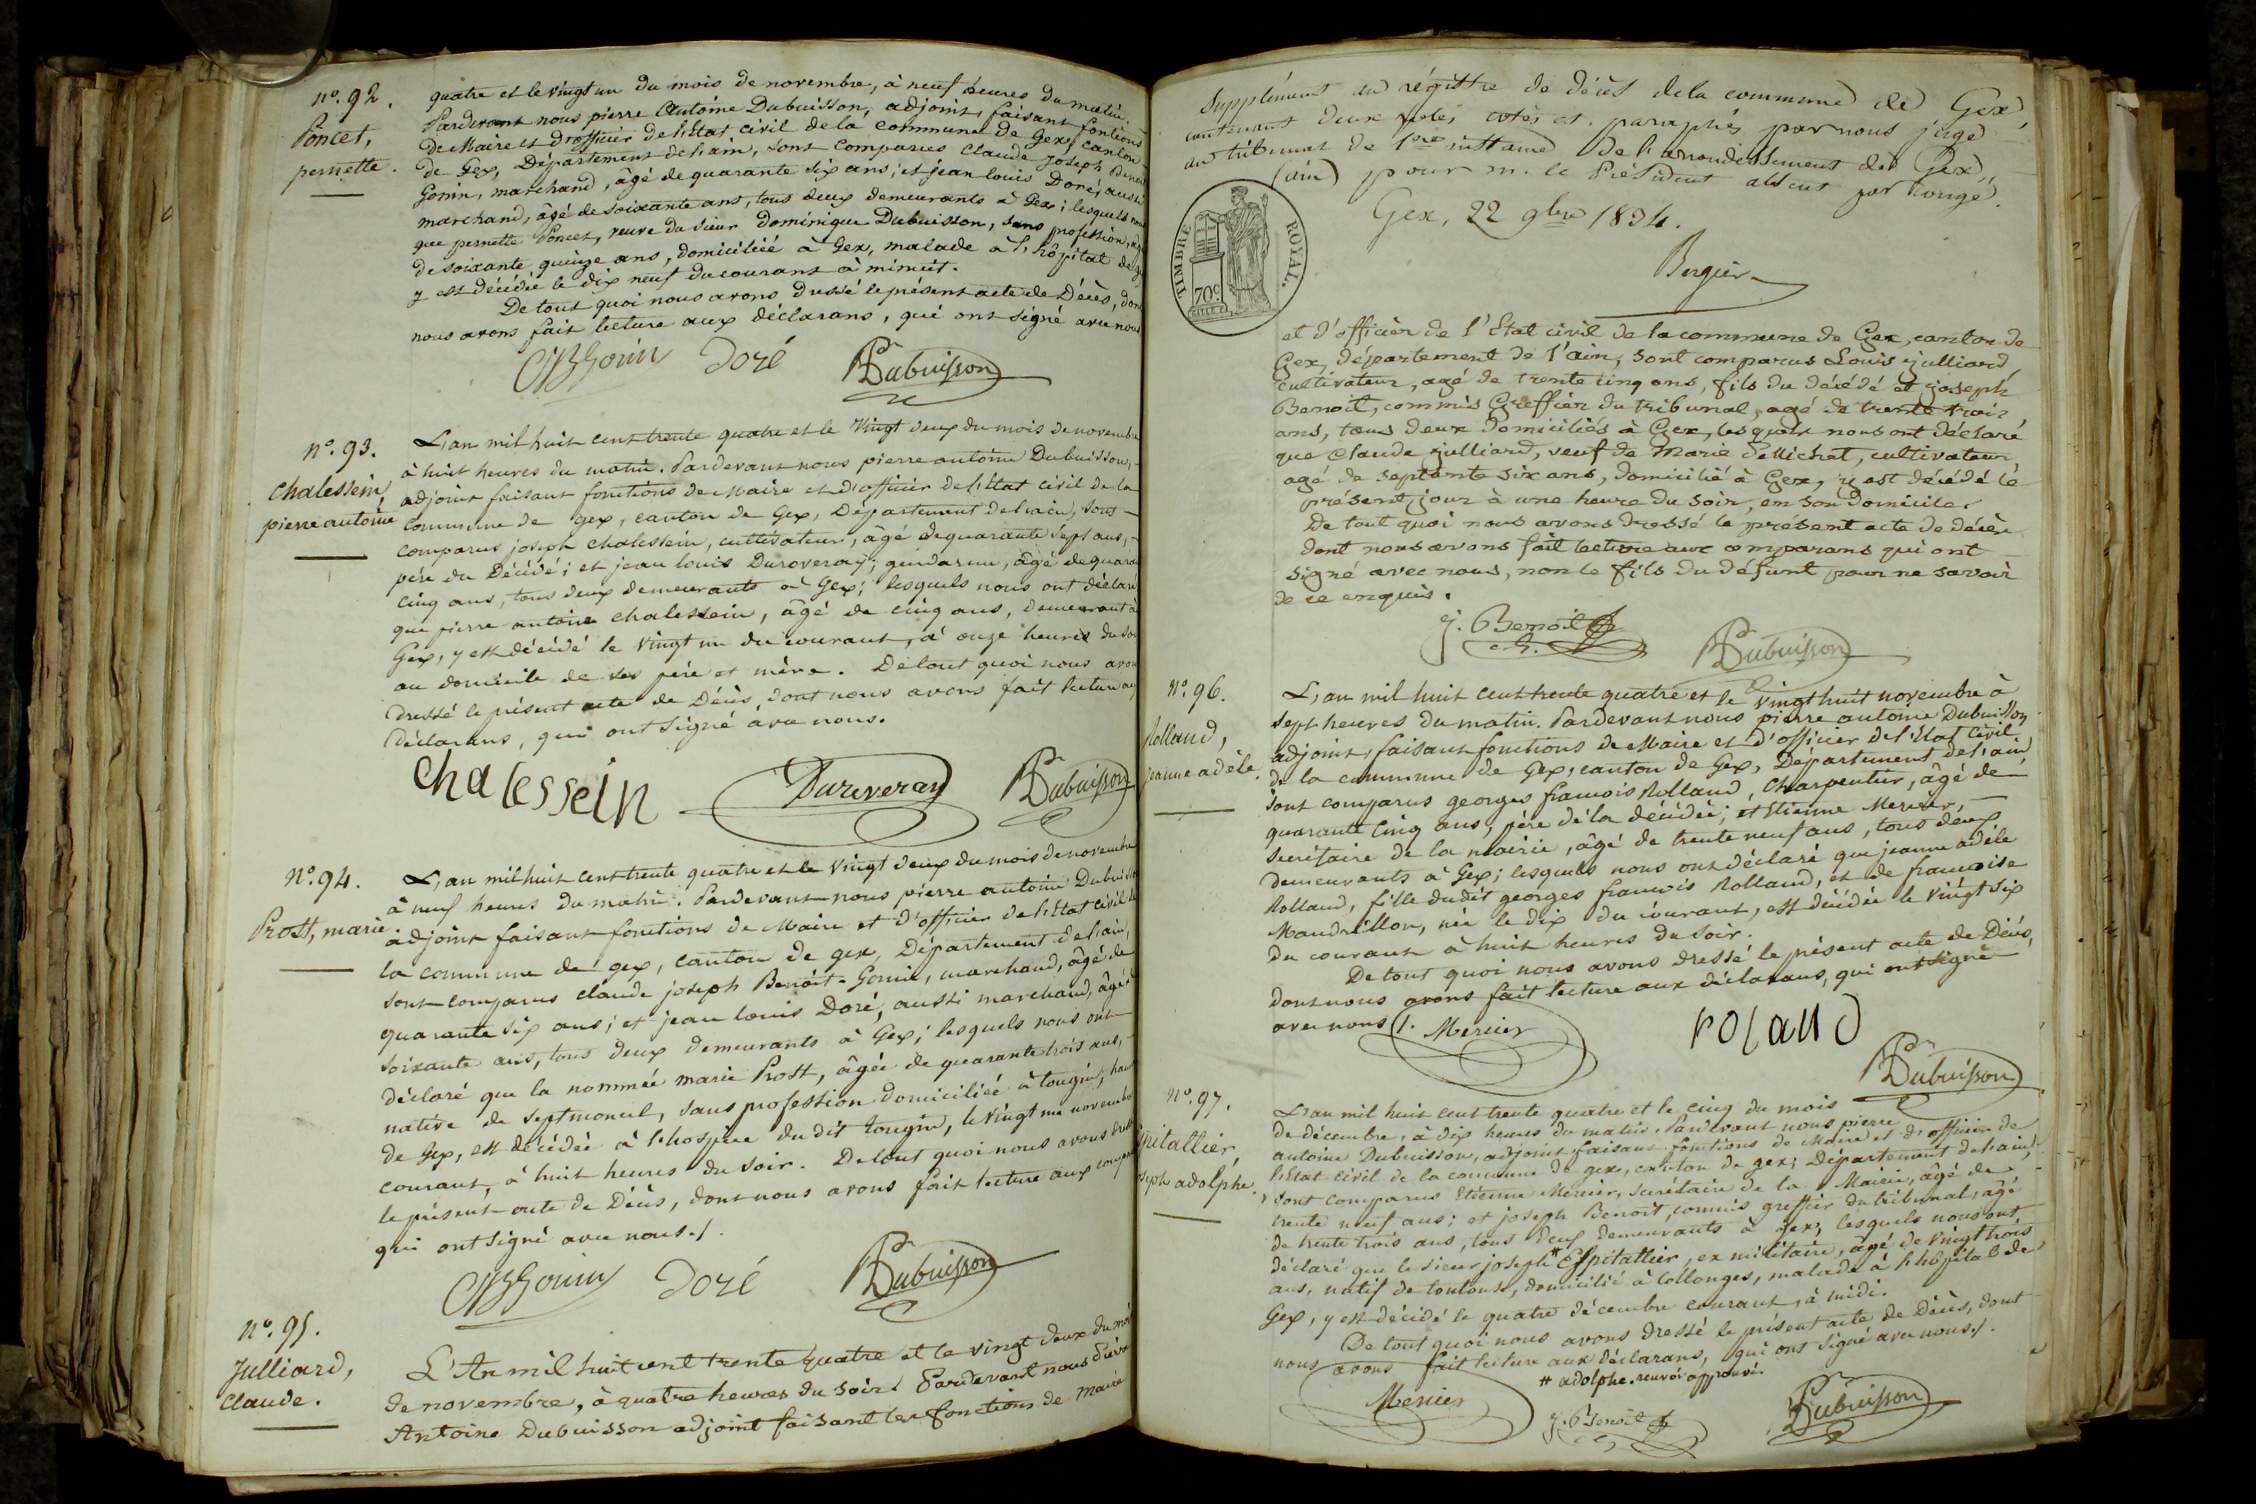 nº. 92.
Poncet,
pernette.
quatre et le vingt un du mois de novembre, à neuf heures du matin.
Pardevant nous pierre Antoine Dubuisson, adjoint, faisant fontions
de Maire et d'officier de l'Etat civil de la commune de Gex, canton
de Gex, Département de l'ain, sont comparus Claude Joseph Benoit
Gonin, marchand, âgé de quarante six ans; et jean louis Doré, aussi
marchand, âgé de soixante ans, tous deux demeurants à Gex; lesquels
que pernette Poncet, veuve du sieur Dominique Dubuisson, sans profession,
de soixante quinze ans, domiciliée à Gex, malade à l'hôpital de
y est décédée le dix neuf du courant à minuit.
De tout quoi nous avons dressé le présent acte de Décès, dont
nous avons fait lecture aux déclarans, qui ont signé avec nous
CJBGonin Doré PADubuisson
nº. 93.
Chalessein,
pierre antoine
L'an mil huit cent trente quatre et le vingt deux du mois de novembre
à huit heures du matin. Pardevant nous pierre antoine Dubuisson,
adjoint faisant fonctions de Maire et d'officier de l'Etat civil de la
commune de gex, canton de Gex, Département de l'ain, sont
comparus joseph chalessein, cultivateur, âgé de quarante sept ans,
père du Décédé; et jean louis Duroveray, gendarme, âgé de quara
cinq ans, tous deux demeurants à Gex; lesquels nous ont déclaré
que pierre antoine chalessein, âgé de cinq ans, demeurant à
Gex, y est décédé le vingt un du courant, à onze heures du soi
au domicile de ses père et mère. De tout quoi nous avon
dressé le présent acte de Décès, dont nous avons fait lecture au
déclarans, qui ont signé avec nous.
Chalessein Duroveray PADubuisson
nº. 94.
Prost, marie
L'an mil huit cent trente quatre et le vingt deux du mois de novembre
à neuf heures du matin. Pardevant nous pierre antoine Dubuisso
adjoint faisant fonctions de Maire et d'officier de l'Etat civil de
la commune de gex, canton de gex, Département de l'ain,
sont comparus claude joseph Benoît-Gonin, marchand, âgé de
quarante six ans; et jean louis Doré, aussi marchand, âgé d
soixante ans, tous deux demeurants à Gex; lesquels nous ont
déclaré que la nommée marie Prost, âgée de quarante trois ans,
native de septmoncel, sans profession domiciliée à tougin, ham
de Gex, est décédée à l'hospice du dit tougin, le vingt un novembre
courant, à huit heures du soir. De tout quoi nous avons dress
le présent acte de Décès, dont nous avons fait lecture aux compar
qui ont signé avec nous./.
CJBGonin Doré PADubuisson
nº. 95.
Julliard,
Claude.
L'An mil huit cent trente quatre et le vingt deux du moi
de novembre, à quatre heures du soir. Pardevant nous Pierre
Antoine Dubuisson adjoint faisant les fonctions de Maire
Supplément au régistre de décès de la commune de Gex,
contenant deux rôles cotés et paraphés par nous juge
au tribunal de 1ere instance de l'arrondissement de Gex,
(ain) pour m. le Président absent par congé.
Gex, 22 9bre 1834.
TIMBRE ROYAL.
70c.
Bergier
et d'officier de l'Etat civil de la commune de Gex, canton de
Gex, département de l'ain, sont comparus Louis julliard,
cultivateur, agé de trente cinq ans, fils du décédé et joseph
Benoit, commis Greffier du tribunal, agé de trente trois
ans, tous deux domiciliés à Gex, lesquels nous ont déclaré
que Claude julliard, veuf de Marie Demichet, cultivateur
agé de septante six ans, domicilié à Gex, y est décédé le
présent jour à une heure du soir, en son domicile.
De tout quoi nous avons dressé le présent acte de décès
dont nous avons fait lecture aux comparans qui ont
signé avec nous, non le fils du défunt pour ne savoir
de ce enquis.
j. Benoit PADubuisson
nº. 96.
Rolland,
jeanne adèle.
L'an mil huit cent trente quatre et le vingt huit novembre à
sept heures du matin. Pardevant nous pierre antoine Dubuisson
adjoint, faisant fonctions de Maire et d'officier de l'Etat civil
de la commune de Gex, canton de Gex, Département de l'ain,
sont comparus georges francois Rolland, Charpentier, âgé de
quarante cinq ans, père de la décédée; et Etienne Mercier,
secrétaire de la mairie, âgé de trente neuf ans, tous deux
demeurants à Gex; lesquels nous ont déclaré que jeanne adèle
Rolland, fille dudit georges francois Rolland, et de francoise
Mandrillon, née le dix du courant, est décédée le vingt six
du courant à huit heures du soir.
De tout quoi nous avons dressé le présent acte de Décès,
dont nous avons fait lecture aux déclarans, qui ont signé
avec nous /. Mercier rolland
PADubuisson
nº. 97.
pitallier,
seph adolphe.
L'an mil huit cent trente quatre et le cinq du mois
de décembre, à dix heures du matin. Pardevant nous pierre
antoine Dubuisson, adjoint faisant fonctions de Maire et d'officier de
l'Etat civil de la commune de gex, canton de gex, Département de l'ain,
sont comparus Etienne Mercier, secrétaire de la Mairie, âgé de
trente neuf ans; et joseph Benoit, commis greffier du tribunal, âgé
de trente trois ans, tous deux demeurants à gex; lesquels nous ont
déclaré que le sieur joseph # Espitallier, ex militaire, âgé de vingt trois
ans, natif de toulouse, domicilié à Collonges, malade à l'hôpital de
Gex, y est décédé le quatre décembre courant, à midi.
De tout quoi nous avons dressé le présent acte de Décès, dont
nous avons fait lecture aux déclarans, qui ont signé avec nous /.
# adolphe. renvoi approuvé.
Mercier j. Benoit PADubuisson